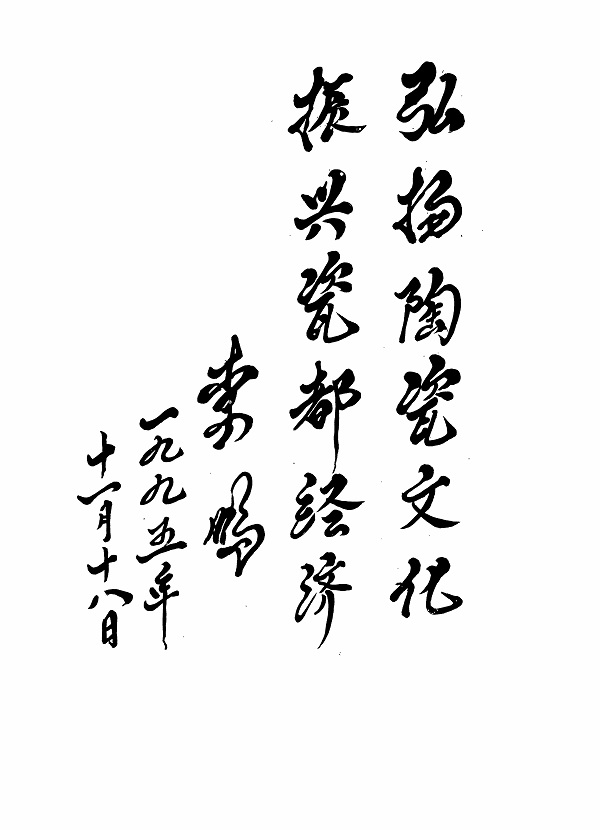 弘扬陶瓷文化
振兴瓷都经济
李鹏
一九九五年
十一月十八日